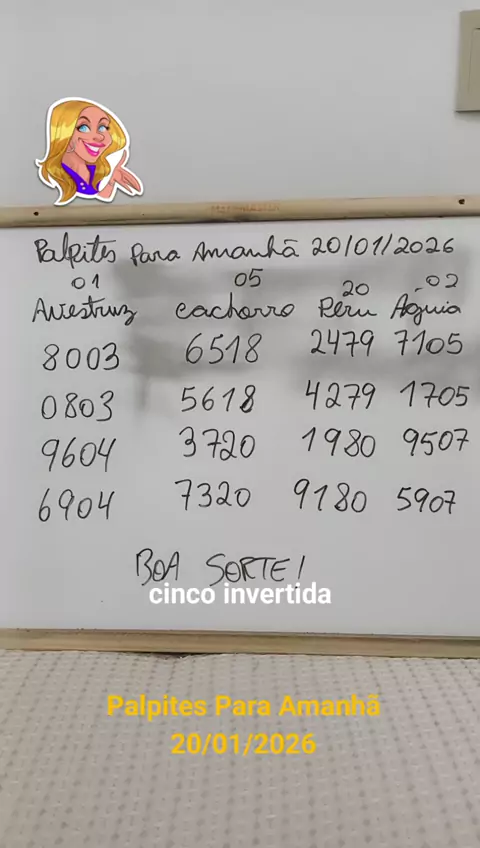 Palpites Para Amanhã 20/01/2026
01 05 20 02
Avestruz Cachorro Peru Águia
8003 6518 2479 7105
0803 5618 4279 1705
9604 3720 1980 9507
6904 7320 9180 5907
BOA SORTE!
cinco invertida
Palpites Para Amanhã
20/01/2026